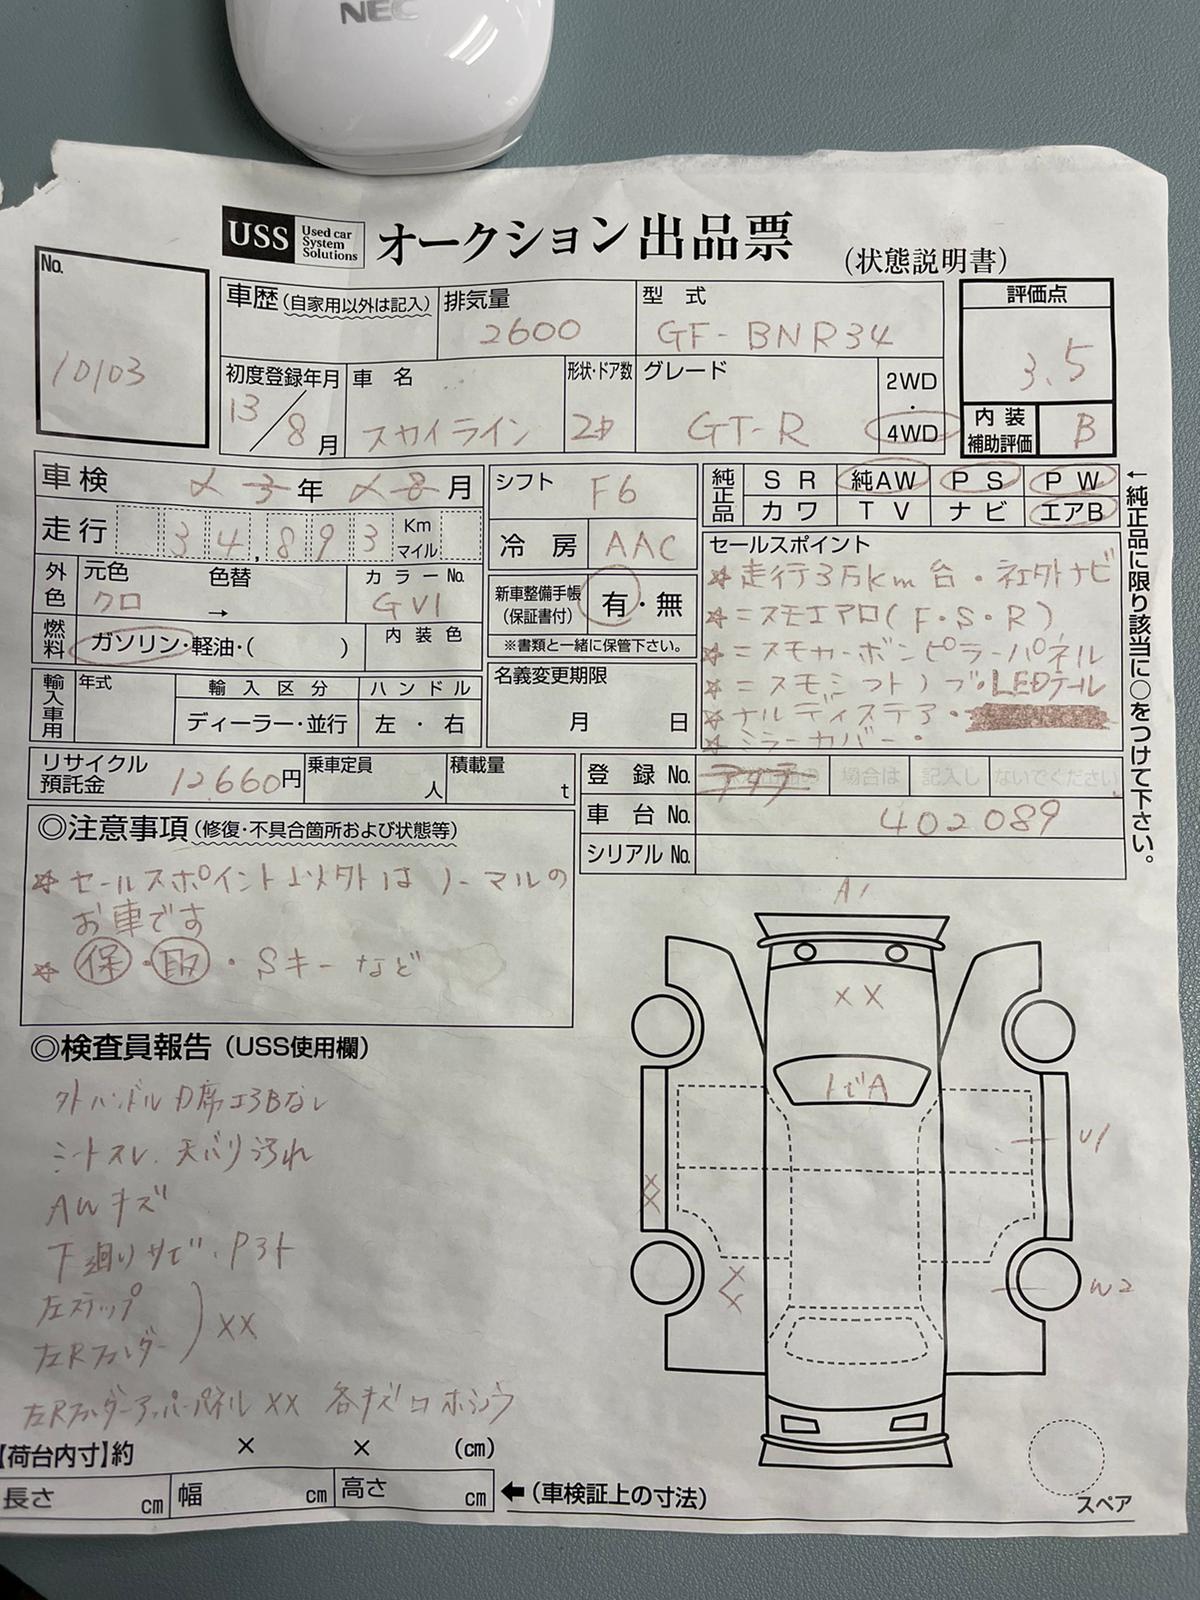 NEC
USS Used car System Solutions オークション出品票 (状態説明書)
No. 10103
車歴 (自家用以外は記入) 排気量 2600 型式 GF-BNR34
評価点 3.5
初度登録年月 13/8月 車名 スカイライン 形状・ドア数 2D グレード GT-R 2WD・4WD
内装補助評価 B
車検 年 月 シフト F6
純正品 SR 純AW PS PW
カワ TV ナビ エアB
走行 34,893 Km マイル 冷房 AAC
外色 元色 クロ 色替 → カラーNo. GV1
新車整備手帳 (保証書付) 有・無
※書類と一緒に保管下さい。
燃料 ガソリン・軽油・( ) 内装色
輸入車用 年式 輸入区分 ハンドル
ディーラー・並行 左・右
名義変更期限
月 日
セールスポイント
☆走行3万km台・社外ナビ
☆ニスモエアロ(F・S・R)
☆ニスモカーボンピラーパネル
☆ニスモシフトノブ・LEDテール
☆ナルディステア・
☆ミラーカバー・
←純正品に限り該当に○をつけて下さい。
リサイクル預託金 12,660円 乗車定員 人 積載量 t
登録No. 場合は 記入し ないでください
車台No. 402089
シリアルNo.
◎注意事項 (修復・不具合箇所および状態等)
☆セールスポイント以外はノーマルの
お車です
☆保・取・Sキーなど
◎検査員報告 (USS使用欄)
外ハンドル D席エアBなし
シートスレ、天バリ汚れ
AWキズ
下廻りサビ・Pヌケ
左ステップ
左Rフェンダー ) XX
左Rフェンダーアッパーパネル XX 各キズ
A1
XX
トビA
U1
XX
XX
W2
【荷台内寸】約 × × (cm)
長さ cm 幅 cm 高さ cm ←(車検証上の寸法)
スペア